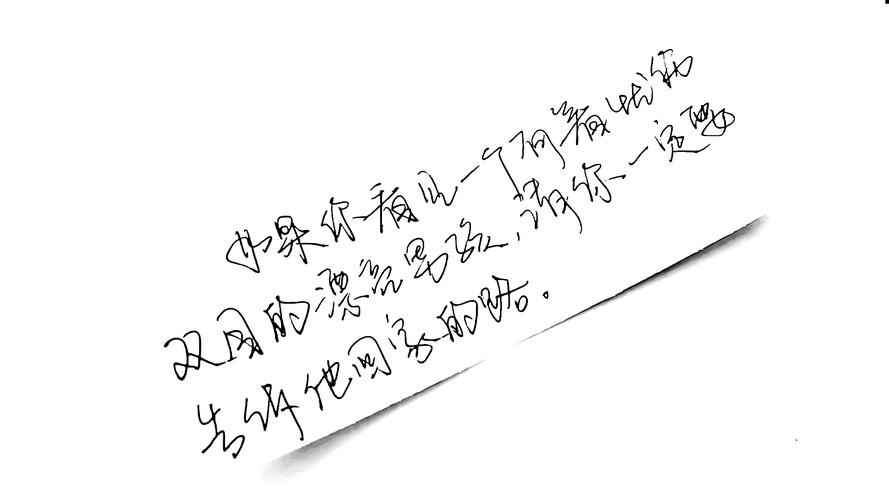 如果你看见一个有着忧伤
双目的漂亮男孩，请你一定要
告诉他回家的路。